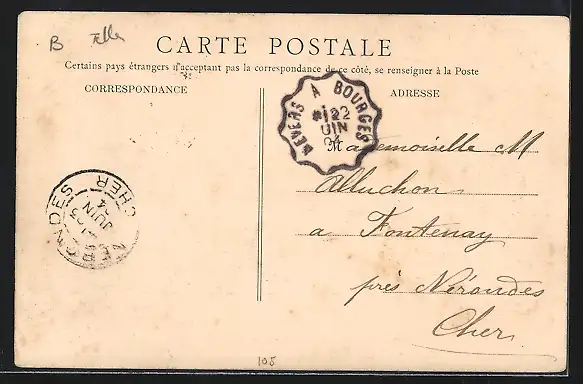 B
CARTE POSTALE
Certains pays étrangers n'acceptant pas la correspondance de ce côté, se renseigner à la Poste
CORRESPONDANCE
ADRESSE
NEVERS A BOURGES
22
JUIN
04
Mademoiselle M
Alluchon
a Fontenay
près Nérondes
Cher
NERONDES
CHER
23
JUIN
04
105